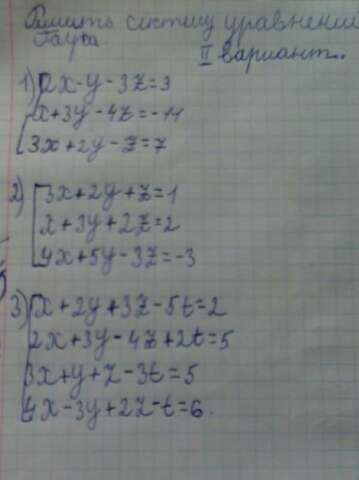 Решить систему уравнений
Гауса
II вариант.
1) 2x-y-3z=3
x+3y-4z=-11
3x+2y-z=7
2) 3x+2y+z=1
x+3y+2z=2
4x+5y-3z=-3
3) x+2y+3z-5t=2
2x+3y-4z+2t=5
3x+y+z-3t=5
4x-3y+2z-t=6.